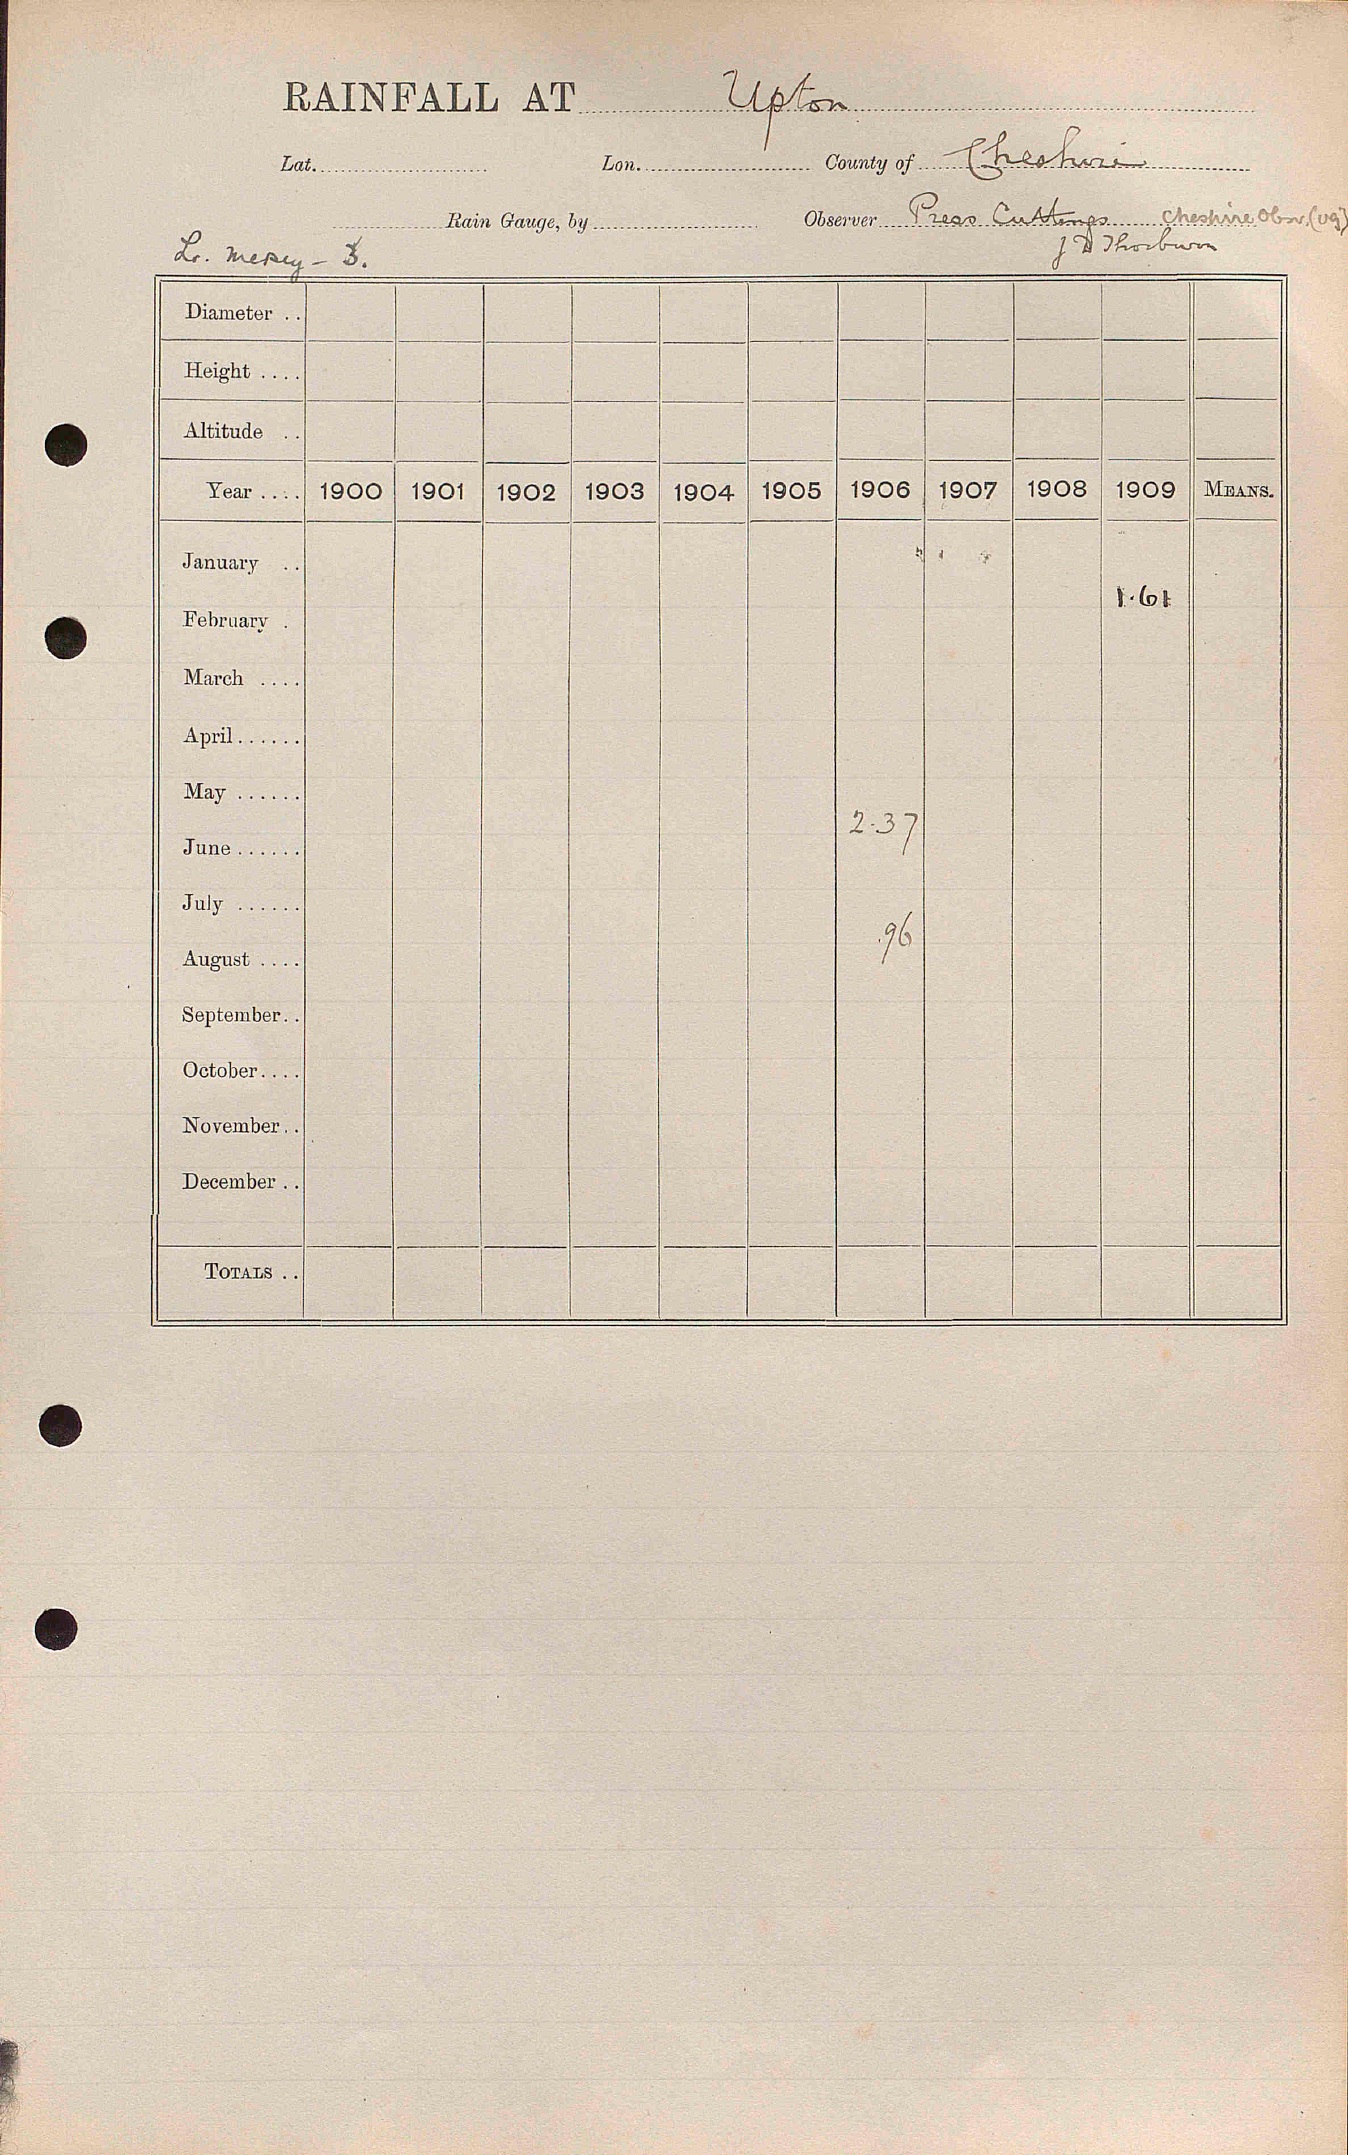 RAINFALL AT Upton
Lat. Lon. County of Cheshire
Rain Gauge, by Observer Press Cuttings Cheshire Obsr. (09)
Lr. Mersey - J D Thorburn
Diameter ..
Height ....
Altitude ..
Year .... 1900 1901 1902 1903 1904 1905 1906 1907 1908 1909 MEANS.
January ..
1.61
February .
March ....
April ......
May ......
2.37
June ......
July ......
.96
August ....
September ..
October ....
November ..
December ..
TOTALS ..